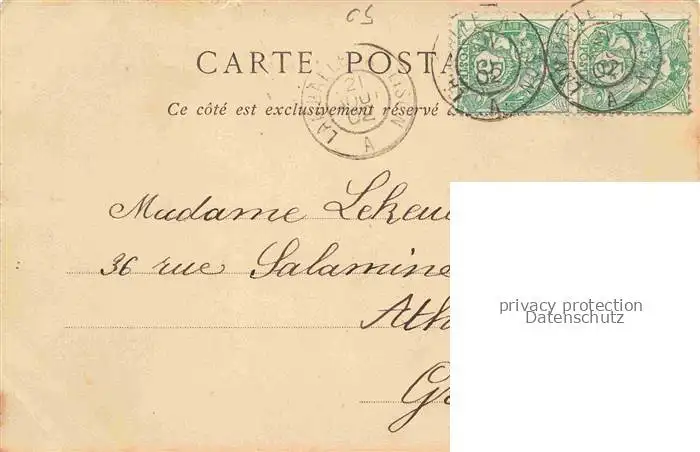 CARTE POSTA
Ce côté est exclusivement réservé
21
02
A
02
A
Madame Lekeu
36 rue Salamine
Ath
G
privacy protection
Datenschutz